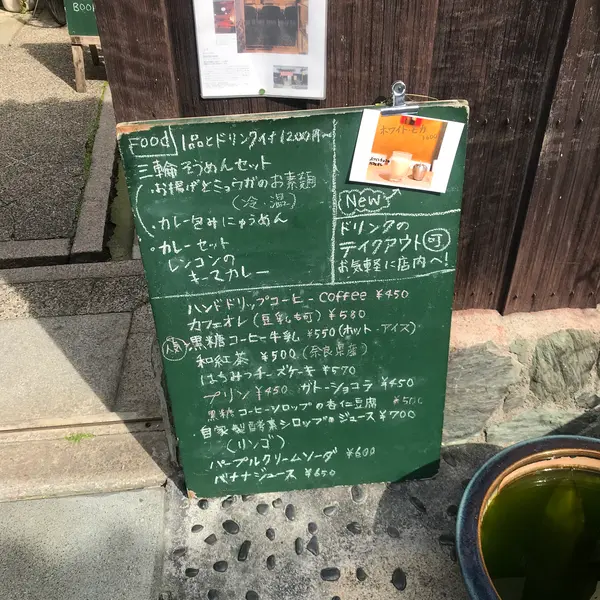 BOOK
Food 1品とドリンク付 1200円〜
三輪そうめんセット
・お揚げとミョウガのお素麺
(冷 温)
・カレー包みにゅうめん
・カレーセット
レンコンの
キーマカレー
ホワイトモカ
New
ドリンクの
テイクアウト可
お気軽に店内へ!
ハンドドリップコーヒー coffee ¥450
カフェオレ(豆乳も可) ¥580
人気 黒糖コーヒー牛乳 ¥550(ホット・アイス)
和紅茶 ¥500(奈良県産)
はちみつチーズケーキ ¥570
プリン ¥450 ガトーショコラ ¥450
黒糖コーヒーシロップの杏仁豆腐 ¥500
・自家製酵素シロップのジュース ¥700
(リンゴ)
パープルクリームソーダ ¥600
バナナジュース ¥650